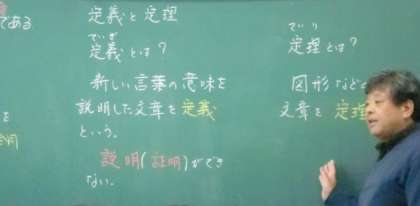 である
定義と定理
ていぎ
定義とは?
新しい言葉の意味を
説明した文章を定義
という。
説明(証明)ができ
ない。
ていり
定理とは?
図形など
文章を定理
を
明